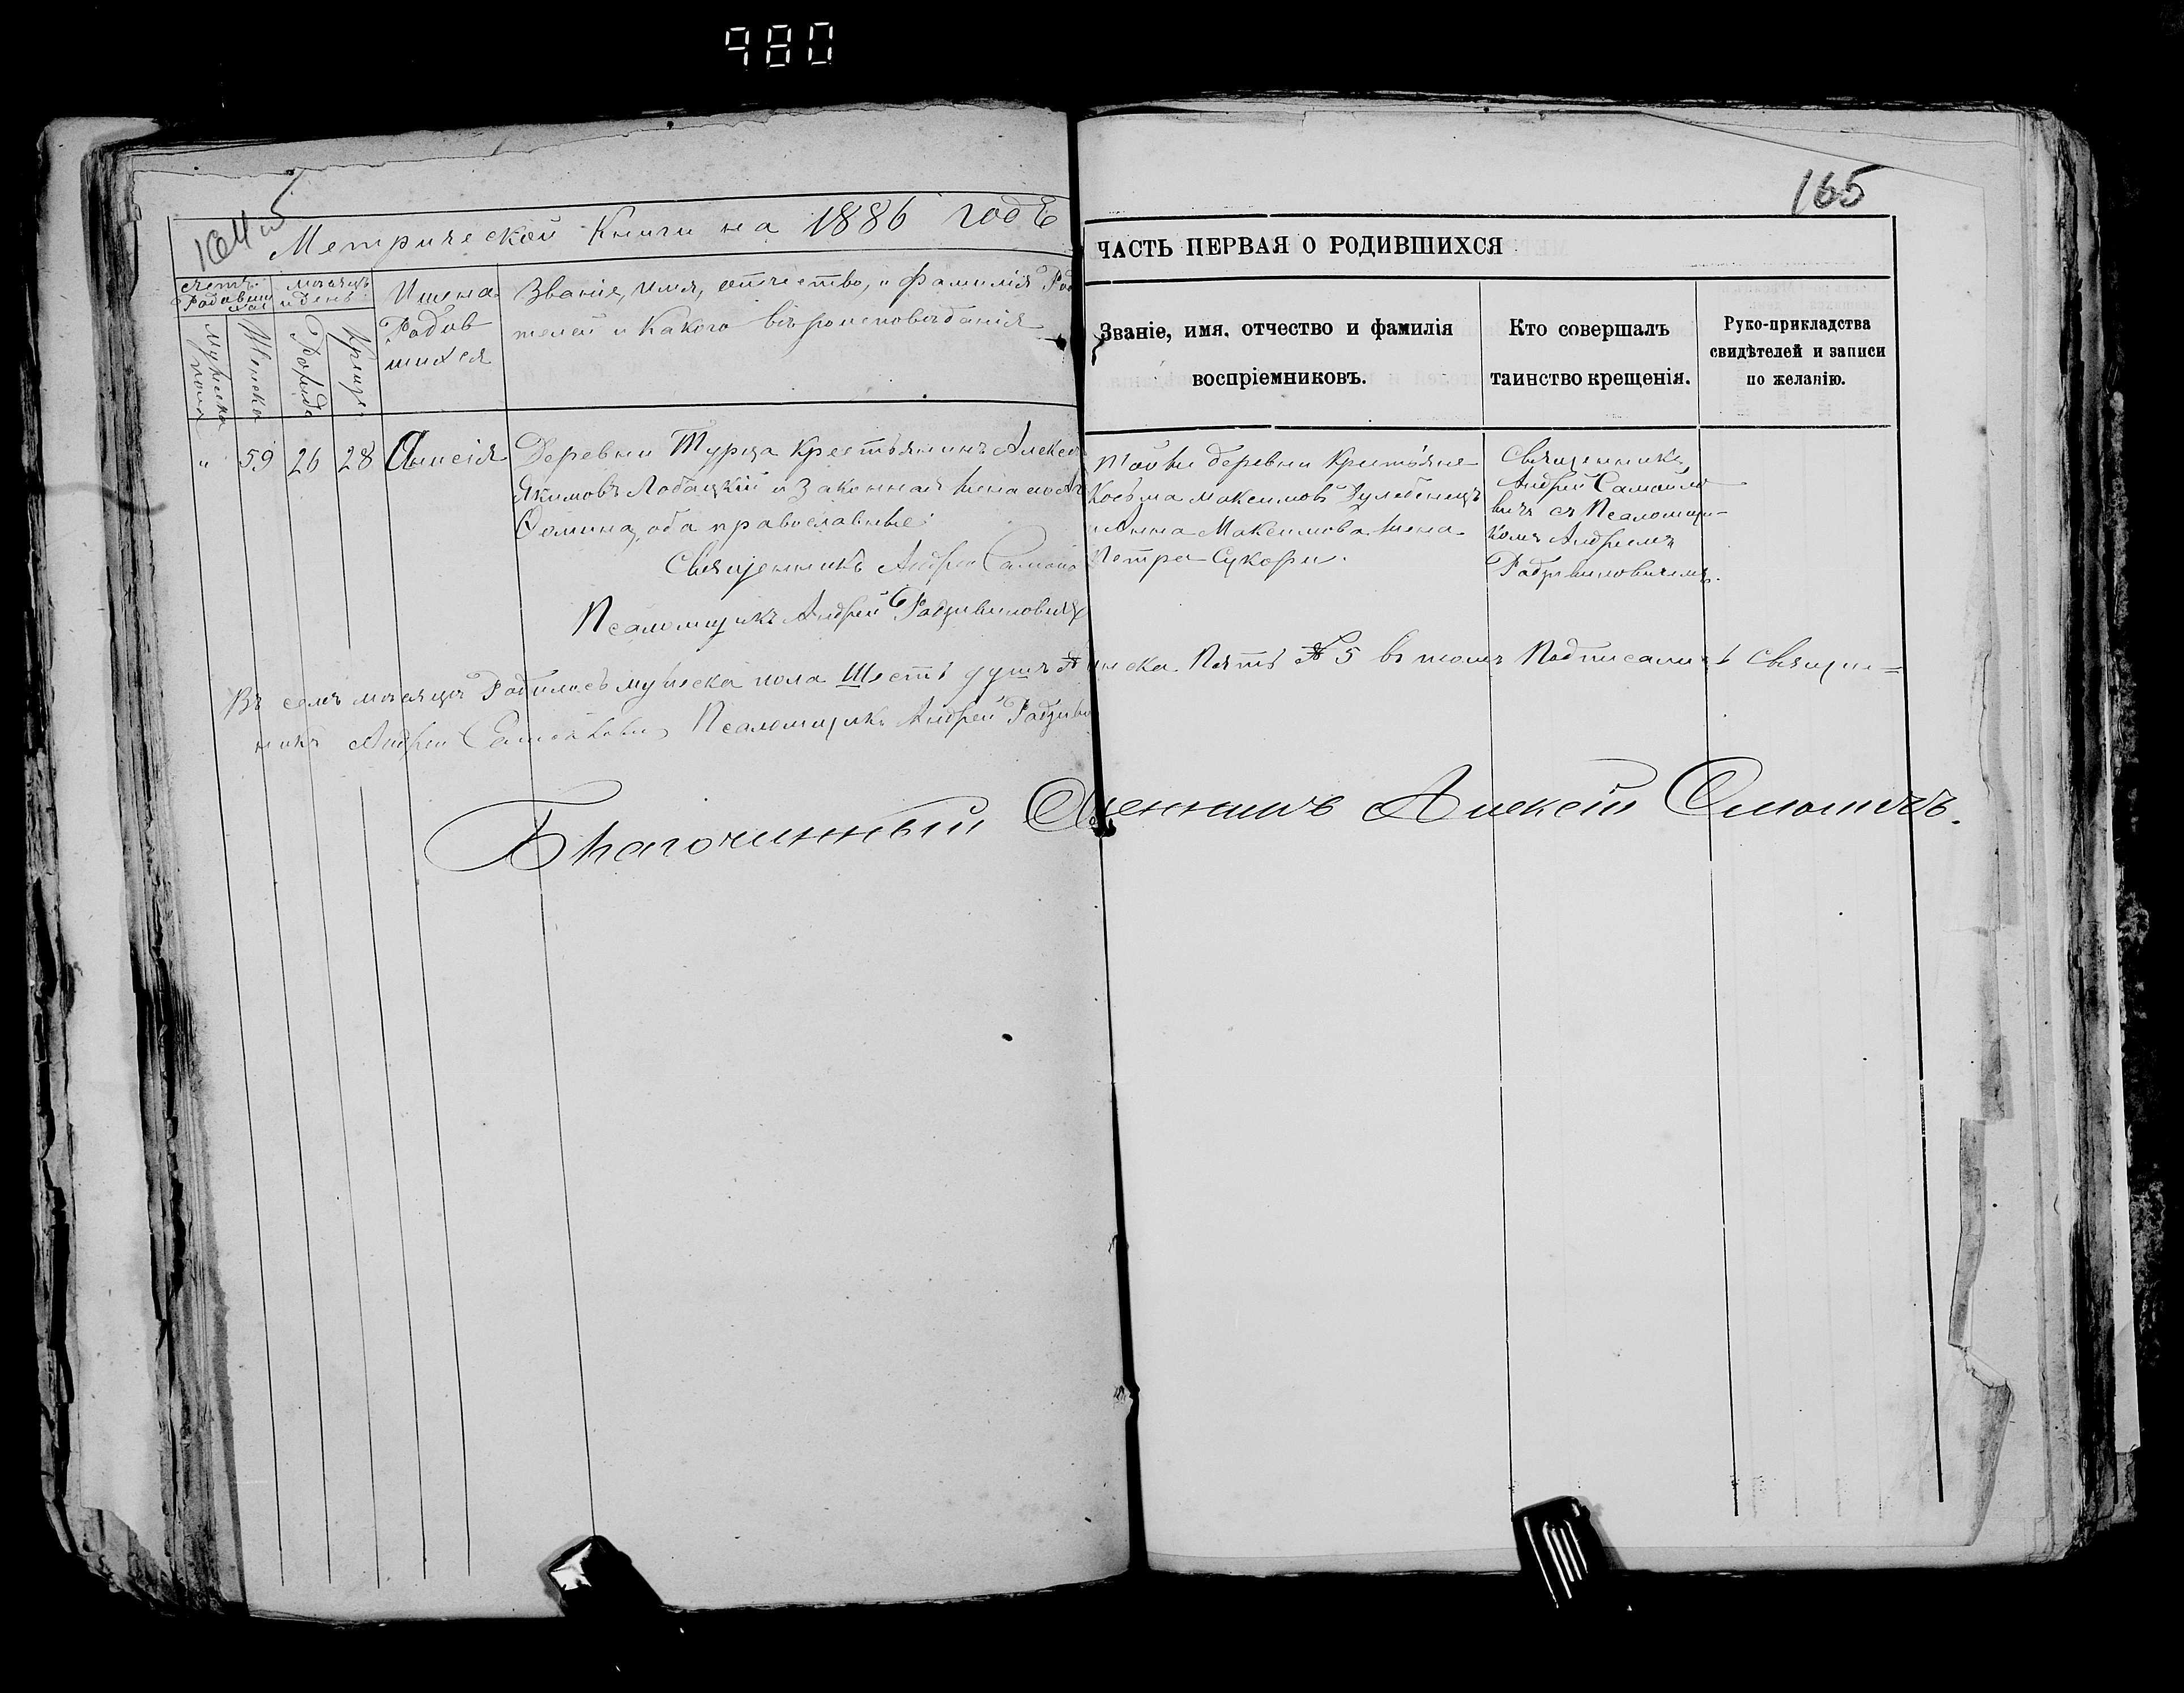 980
165
Метрической Книги на 1886 годъ
ЧАСТЬ ПЕРВАЯ О РОДИВШИХСЯ
счетъ Родивши мѣсяцъ и день
Имена Родив шихся
Званіе, имя, отчество, и фамилія Ро
телей и какого вѣроисповѣданія
Званіе, имя, отчество и фамилія
воспріемниковъ.
Кто совершалъ
таинство крещенія.
Руко-прикладства
свидѣтелей и записи
по желанію.
" 59 26 28 Анисія
Деревни Турца Крестьянинъ Алексѣ
Якимовъ Лобацкій и Законная жена
Ѳомина, оба православные.
Священникъ Андрей Самойло
Псаломщикъ Андрей Радзивиловичъ
Той же деревни Крестьяне
Косьма Максимовъ
Анна Максимова жена
Петра Сукори.
Священникъ
Андрей Самойло
вичъ съ Псаломщи-
комъ Андреемъ
Радзивиловичемъ.
Въ семъ мѣсяцѣ Родилось мужеска пола Шесть душъ женска Пять 5 въ томъ Подписались Священ=
никъ Андрей Самойлович, Псаломщикъ Андрей Радзиви
Благочинный Священникъ Алексій